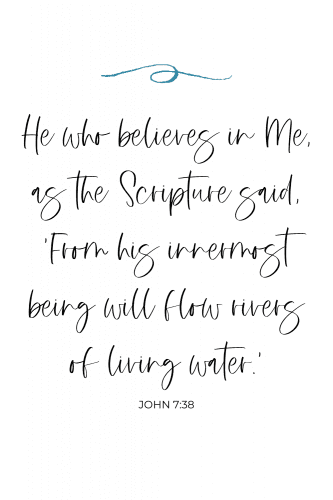 He who believes in Me,
as the Scripture said,
'From his innermost
being will flow rivers
of living water.'
JOHN 7:38